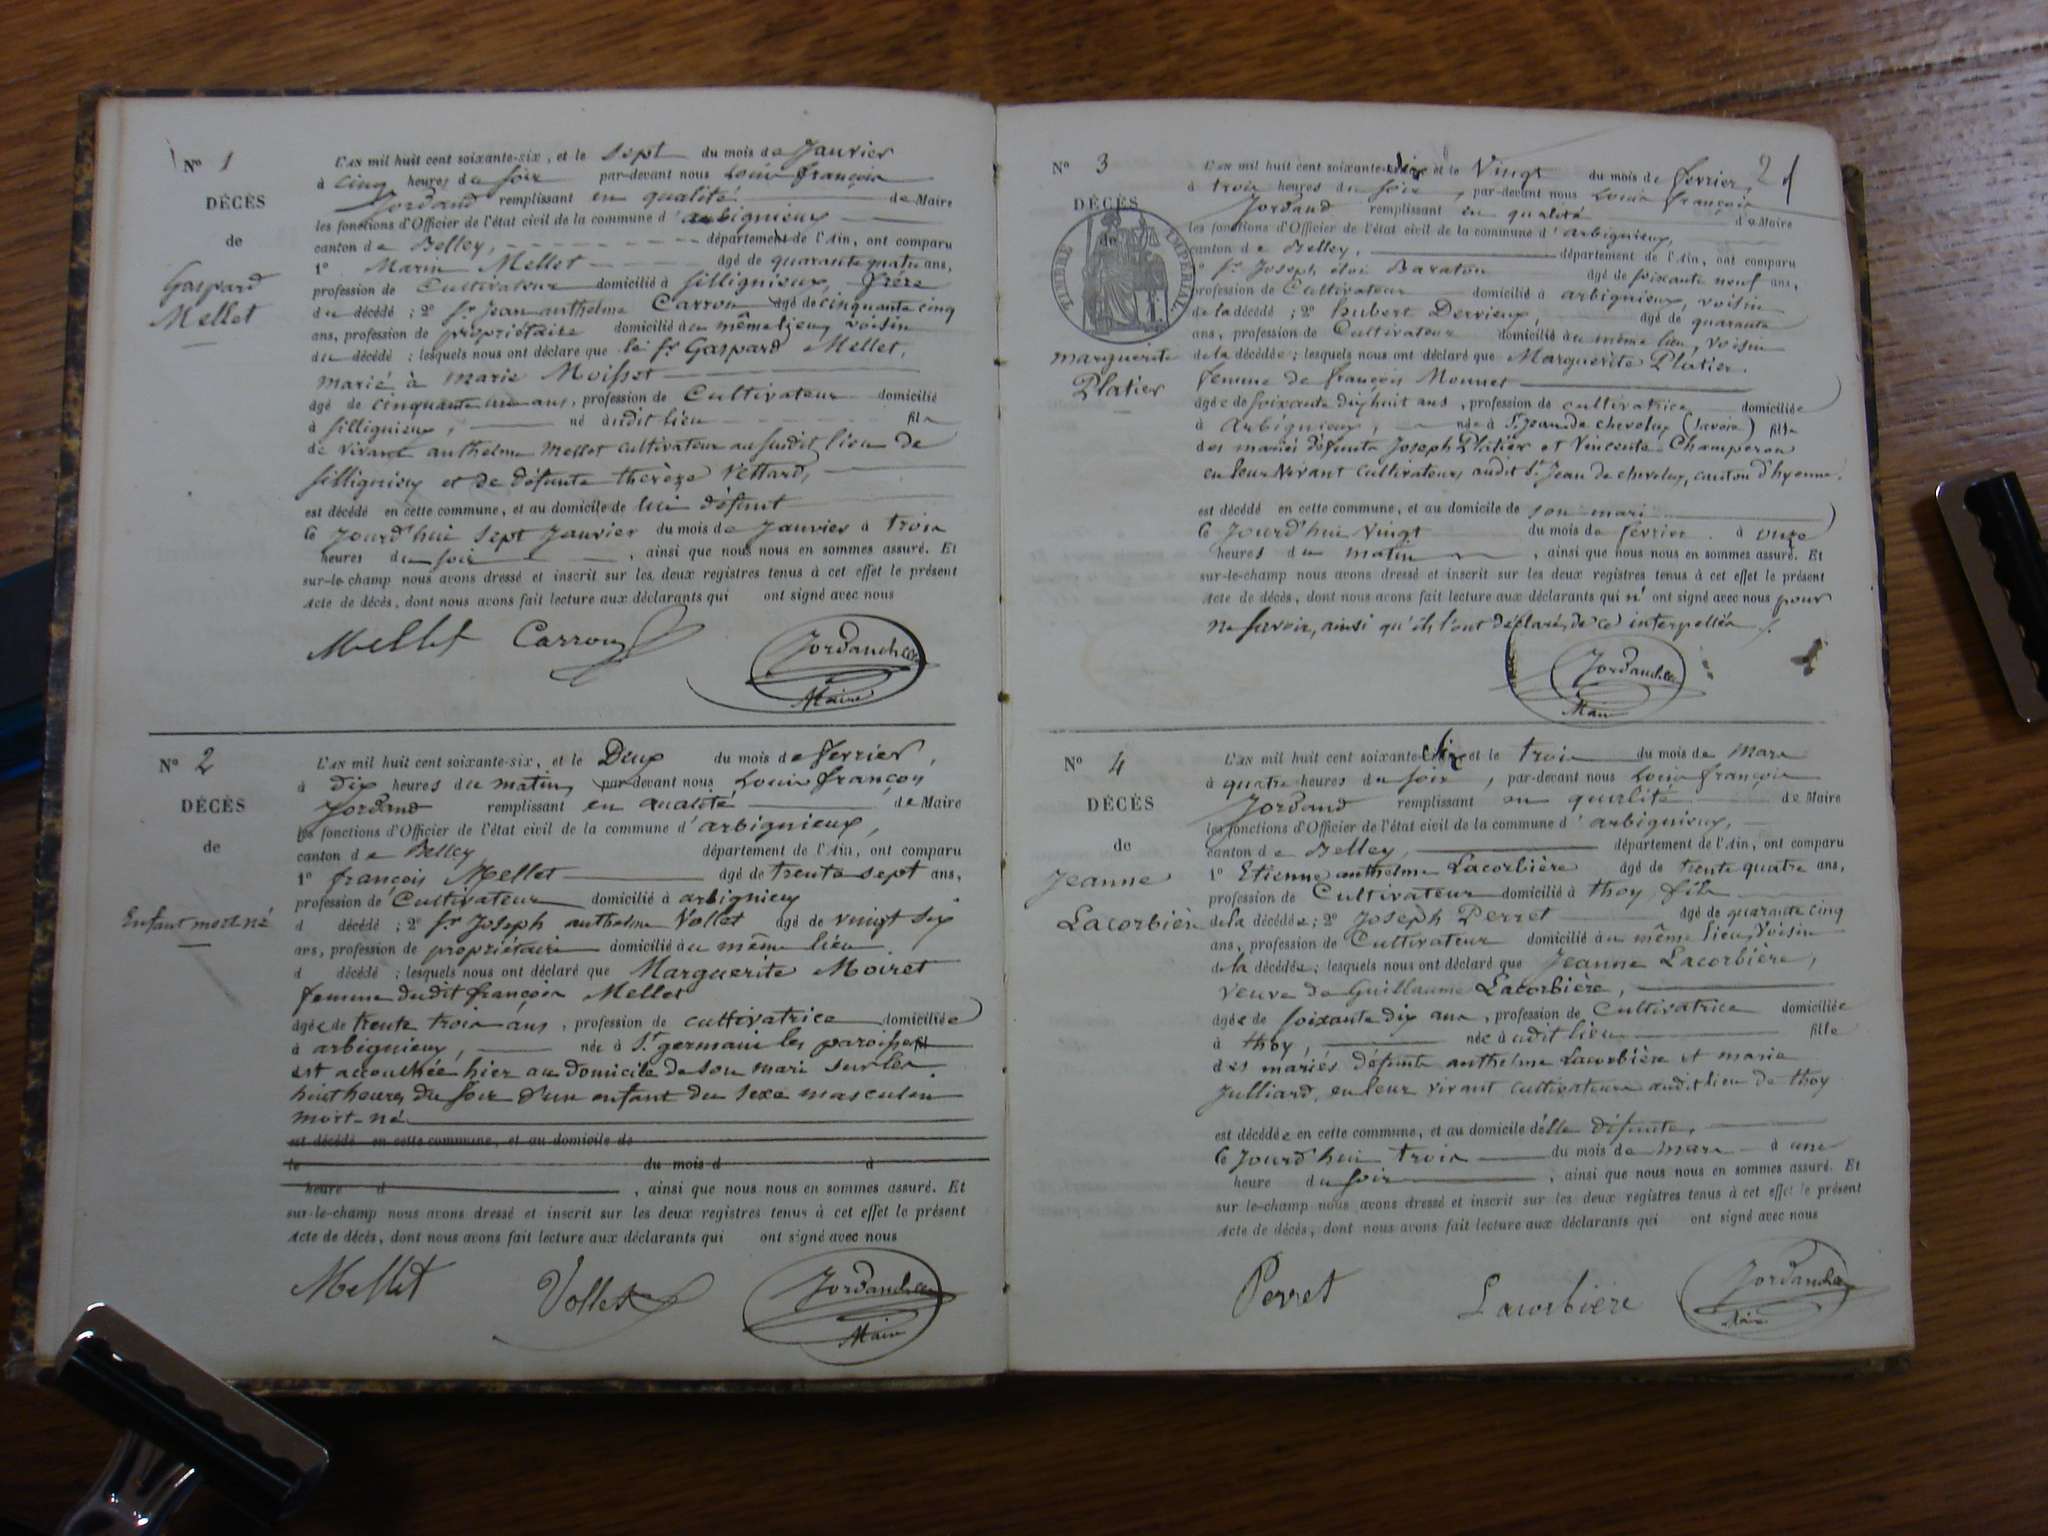 N° 1
DÉCÈS
de
Gaspard
Mellet
L'AN mil huit cent soixante-six, et le sept du mois de Janvier
à cinq heures du soir par-devant nous Louis françois
Jordand remplissant en qualité de Maire
les fonctions d'Officier de l'état civil de la commune d'arbignieux
canton de Belley, département de l'Ain, ont comparu
1° Marin Mellet âgé de quarante quatre ans,
profession de Cultivateur domicilié à Sillignieux, frère
du décédé ; 2° Sr Jean anthelme Carron âgé de cinquante cinq
ans, profession de propriétaire domicilié au même lieu, voisin
du décédé ; lesquels nous ont déclaré que le Sr Gaspard Mellet,
marié à marie Moisset
âgé de cinquante un ans, profession de Cultivateur domicilié
à Sillignieux, né audit lieu fils
de vivant anthelme Mellet cultivateur au susdit lieu de
Sillignieux et de défunte thérèze Vettard,
est décédé en cette commune, et au domicile de lui défunt
le jourd'hui sept janvier du mois de Janvier à trois
heures du soir, ainsi que nous nous en sommes assuré. Et
sur-le-champ nous avons dressé et inscrit sur les deux registres tenus à cet effet le présent
Acte de décès, dont nous avons fait lecture aux déclarants qui ont signé avec nous
Mellet Carron Jordand
Maire
N° 2
DÉCÈS
de
Enfant mort né
L'AN mil huit cent soixante-six, et le Deux du mois de février,
à dix heures du matin, par-devant nous Louis françois
Jordand remplissant en qualité de Maire
les fonctions d'Officier de l'état civil de la commune d'arbignieux,
canton de Belley département de l'Ain, ont comparu
1° françois Mellet âgé de trente sept ans,
profession de Cultivateur domicilié à arbignieux
d décédé ; 2° Sr Joseph anthelme Vollet âgé de vingt six
ans, profession de propriétaire domicilié au même lieu
d décédé ; lesquels nous ont déclaré que Marguerite Moiret
femme dudit françois Mellet
âgée de trente trois ans, profession de cultivatrice domiciliée
à arbignieux, née à St germain les paroisses fil
est accouchée hier au domicile de son mari sur les
huit heures du soir d'un enfant du sexe masculin
mort-né
est décédé en cette commune, et au domicile de
le du mois d à
heure d, ainsi que nous nous en sommes assuré. Et
sur-le-champ nous avons dressé et inscrit sur les deux registres tenus à cet effet le présent
Acte de décès, dont nous avons fait lecture aux déclarants qui ont signé avec nous
Mellet Vollet Jordand
Maire
2
N° 3
DÉCÈS
de
TIMBRE IMPÉRIAL
marguerite
Platier
L'AN mil huit cent soixante-six et le Vingt du mois de février,
à trois heures du soir, par-devant nous Louis françois
Jordand remplissant en qualité de Maire
les fonctions d'Officier de l'état civil de la commune d'arbignieux,
canton de Belley, département de l'Ain, ont comparu
1° Sr Joseph éloi Baraton âgé de soixante neuf ans,
profession de Cultivateur domicilié à arbignieux, voisin
de la décédé ; 2° hubert Dervieux, âgé de quarante
ans, profession de Cultivateur domicilié au même lieu, voisin
de la décédée ; lesquels nous ont déclaré que Marguerite Platier
femme de françois Monnet
âgée de soixante dix huit ans, profession de cultivatrice domiciliée
à arbignieux, née à St Jean de chevelux (Savoie) fille
des mariés défunts Joseph Platier et Vincente Champeron
en leur vivant cultivateurs audit St Jean de chevelux, canton d'hyenne.
est décédé en cette commune, et au domicile de son mari
le jourd'hui vingt du mois de février à onze
heures du matin, ainsi que nous nous en sommes assuré. Et
sur-le-champ nous avons dressé et inscrit sur les deux registres tenus à cet effet le présent
Acte de décès, dont nous avons fait lecture aux déclarants qui n'ont signé avec nous pour
ne savoir, ainsi qu'ils l'ont déclaré, de ce interpellés
Jordand
Maire
N° 4
DÉCÈS
de
Jeanne
Lacorbière
L'AN mil huit cent soixante-six et le trois du mois de mars
à quatre heures du soir, par-devant nous Louis françois
Jordand remplissant en qualité de Maire
les fonctions d'Officier de l'état civil de la commune d'arbignieux,
canton de Belley, département de l'Ain, ont comparu
1° Etienne anthelme Lacorbière âgé de trente quatre ans,
profession de Cultivateur domicilié à thoy, fils
de la décédée ; 2° Joseph Perret âgé de quarante cinq
ans, profession de Cultivateur domicilié au même lieu, voisin
de la décédée ; lesquels nous ont déclaré que Jeanne Lacorbière,
veuve de Guillaume Lacorbière,
âgée de soixante dix ans, profession de Cultivatrice domiciliée
à thoy, née audit lieu fille
des mariés défunts anthelme Lacorbière et marie
Julliard, en leur vivant cultivateurs audit lieu de thoy
est décédée en cette commune, et au domicile d'elle défunte,
le jourd'hui trois du mois de mars à une
heure du soir, ainsi que nous nous en sommes assuré. Et
sur-le-champ nous avons dressé et inscrit sur les deux registres tenus à cet effet le présent
Acte de décès, dont nous avons fait lecture aux déclarants qui ont signé avec nous
Perret Lacorbière Jordand
Maire